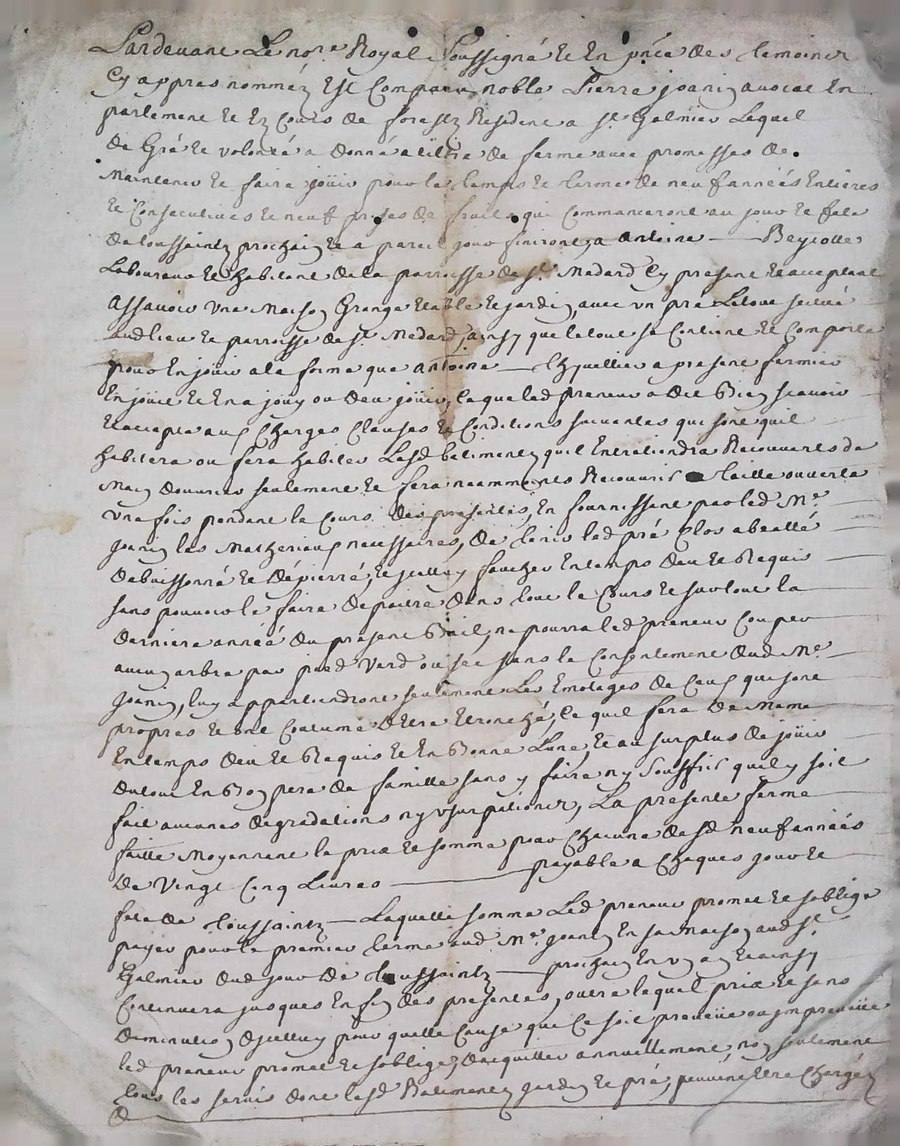 Pardevant Le no.re Royal Soussigné Et En pñce des temoins
Cy appres nommés Est Comparu noble Pierre joanin avocat En
parlement Et Ez Cours de forestz Residant a St Galmier Lequel
de Gré Et volonté a donné a tiltre de ferme avec promesses de
Maintenir Et faire joüir pour le temps Et terme de neuf années Entieres
Et Consecutives Et neuf prises de fruits qui Commanceront au jour Et feste
de toussaintz prochain Et a pareil jour finiront, a antoine Beyjolle
Laboureur Et habitant de la parroisse de St Medard Cy present Et acceptant
assavoir Une Maison Grange Estable Et jardin, avec un pré Le tout scitué
audlieu Et parroisse de St Medard, ainsy que le tout se Contient Et Comporte
pour En joüir a la forme que antoine a present fermier
En joüit Et En a jouy ou deu joüir, Ce que led preneur a dit Bien scavoir
Et accepté aux Charges Clauses Et Conditions suivantes qui sont quil
habitera ou fera habiter Lesd batimentz quil Entretiendra Recouverts de
Main douvrier seulement Et fera neammoints Recouvrir a taille ouverte
Une fois pendant le Cours des presentes, En fournissant par led Mr
joanin les Matheriaux necessaires, de tenir led pré Clos abealé
debuissonné Et dépierré, Et jcelluy faucher En temps deu Et Requis
sans pouvoir le faire depaitre dans tout le Cours Et surtout la
derniere année du present Bail, ne pourra led preneur Couper
aucun arbre par pied Verd ou sec sans le Consentement dud Mr
joanin, luy appartiendront seulement Les Emotages de Ceux qui sont
propres Et ont Coutume d'Etre Etronché, Ce quil fera de Meme
En temps deu Et Requis Et En Bonne Lune Et au surplus de joüir
du tout En Bon pere de famille sans y faire ny souffrir quil y soit
fait aucunes degradations ny usurpations, La presente ferme
faitte Moyennant le prix Et somme pour Chacune desd neuf années
de Vingt Cinq Livres payable a Chaques jour Et
feste de toussaintz Laquelle somme Led preneur promet Et soblige
payer pour le premier terme aud Mr joanin En sa maison aud St
Galmier dud jour de toussaintz prochain En un an Et ainsy
Continuera jusques En fin des presentes, outre lequel prix Et sans
diminution djcelluy pour quelle Cause que Ce soit preveüe ou jmpreveüe
led preneur promet Et soblige, dacquitter annuellement, non seulement
tous les servis dont lesd Batimentz jardin Et pré, peuvent Etre Chargés